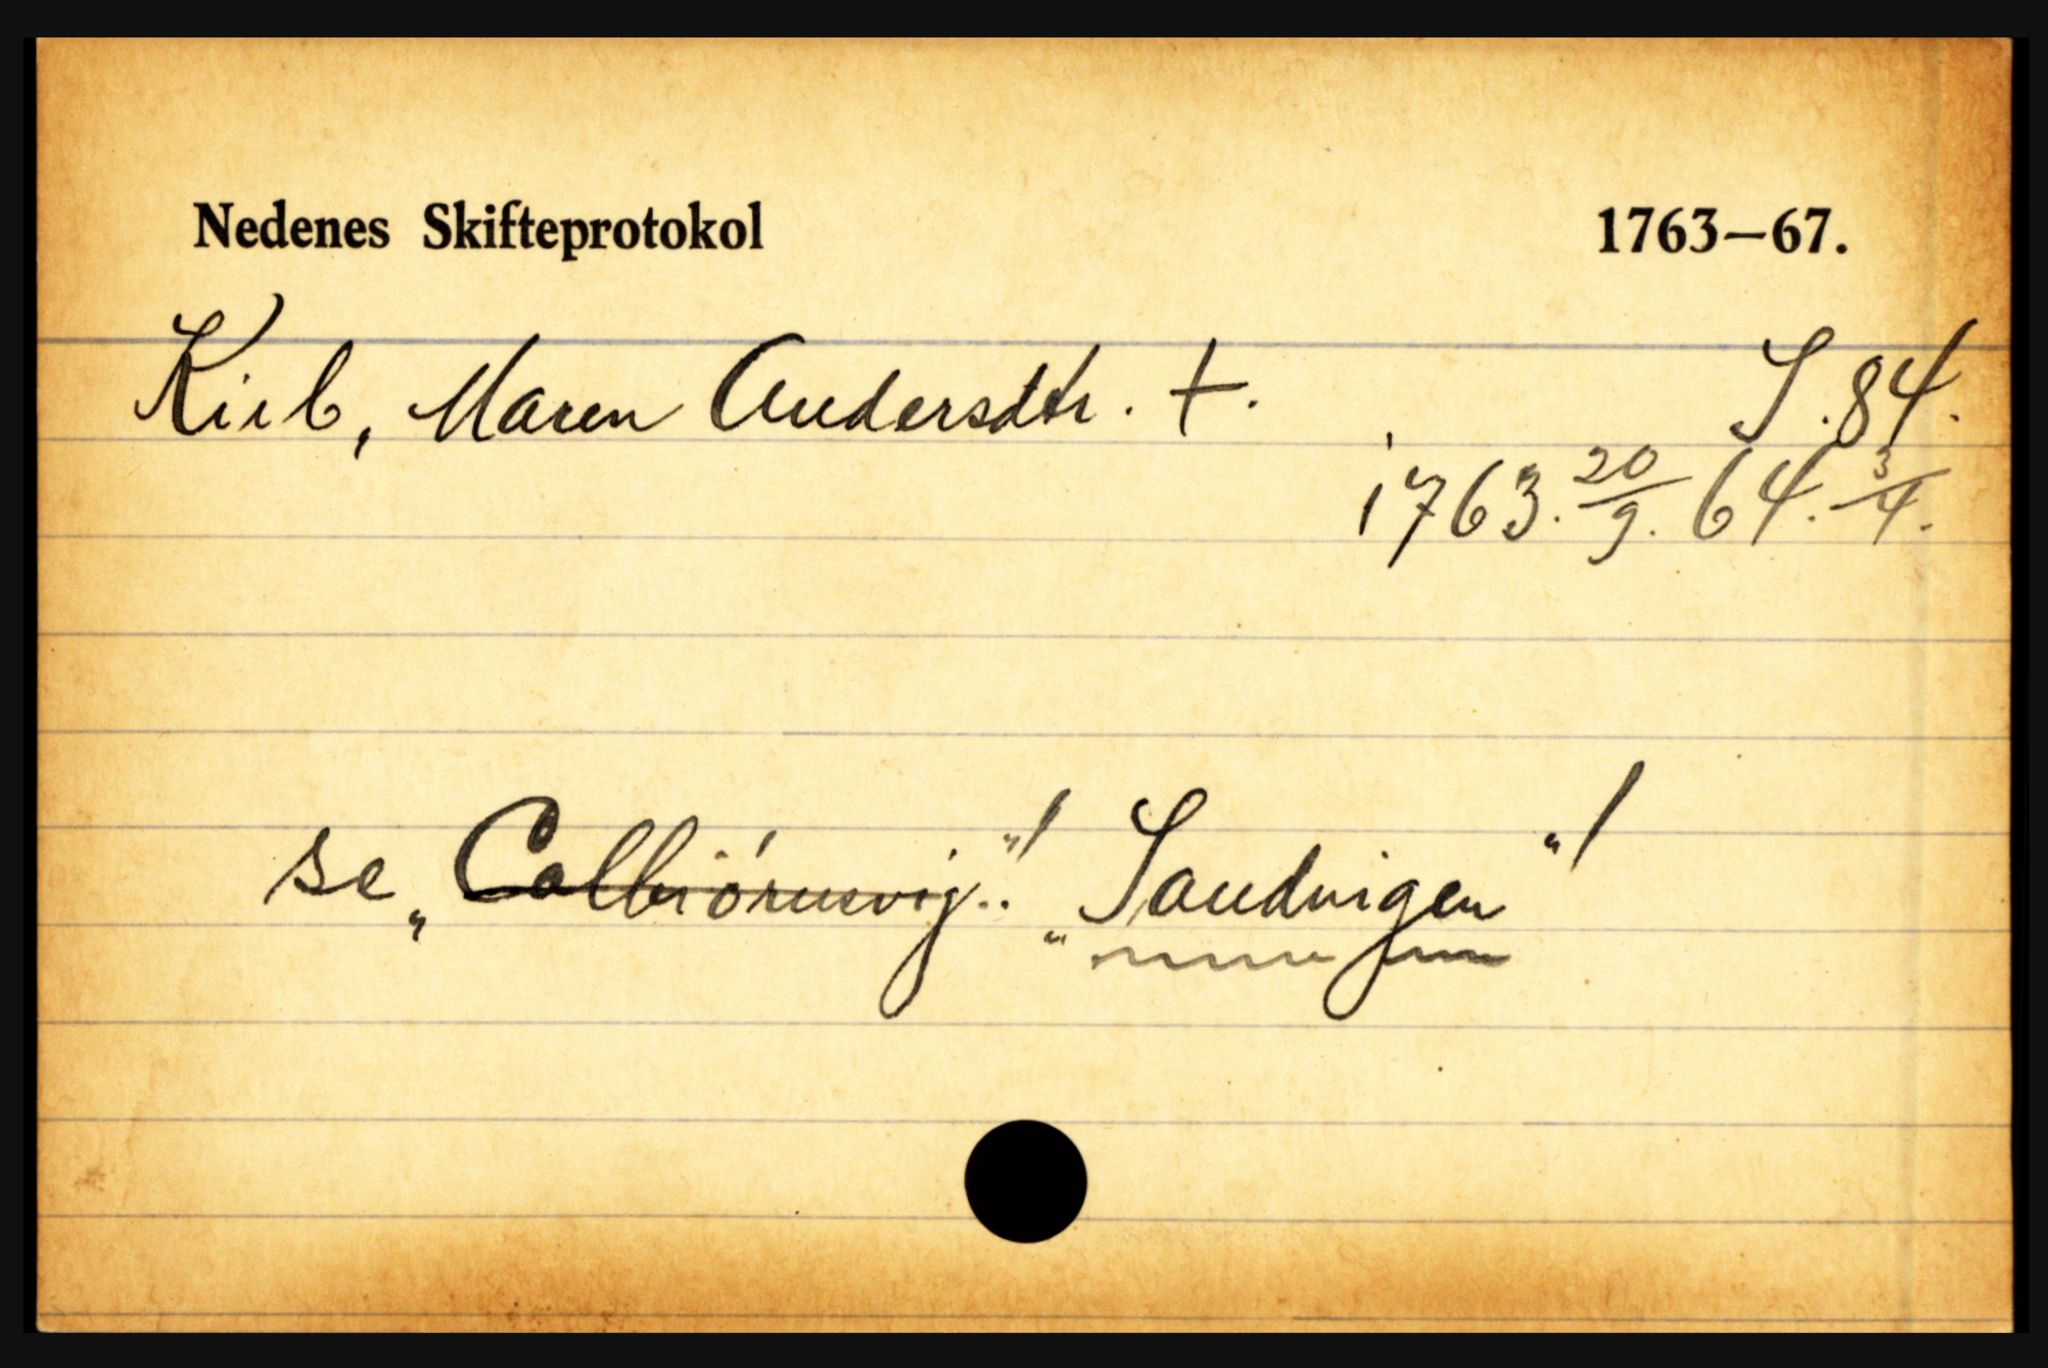 Nedenes Skifteprotokol 1763—67.
Kiib, Maren Andersdtr. †. S. 84.
1763. 20/9. 64. 3/4.
se „Colbiörnsvig."! „Sandvigen"!